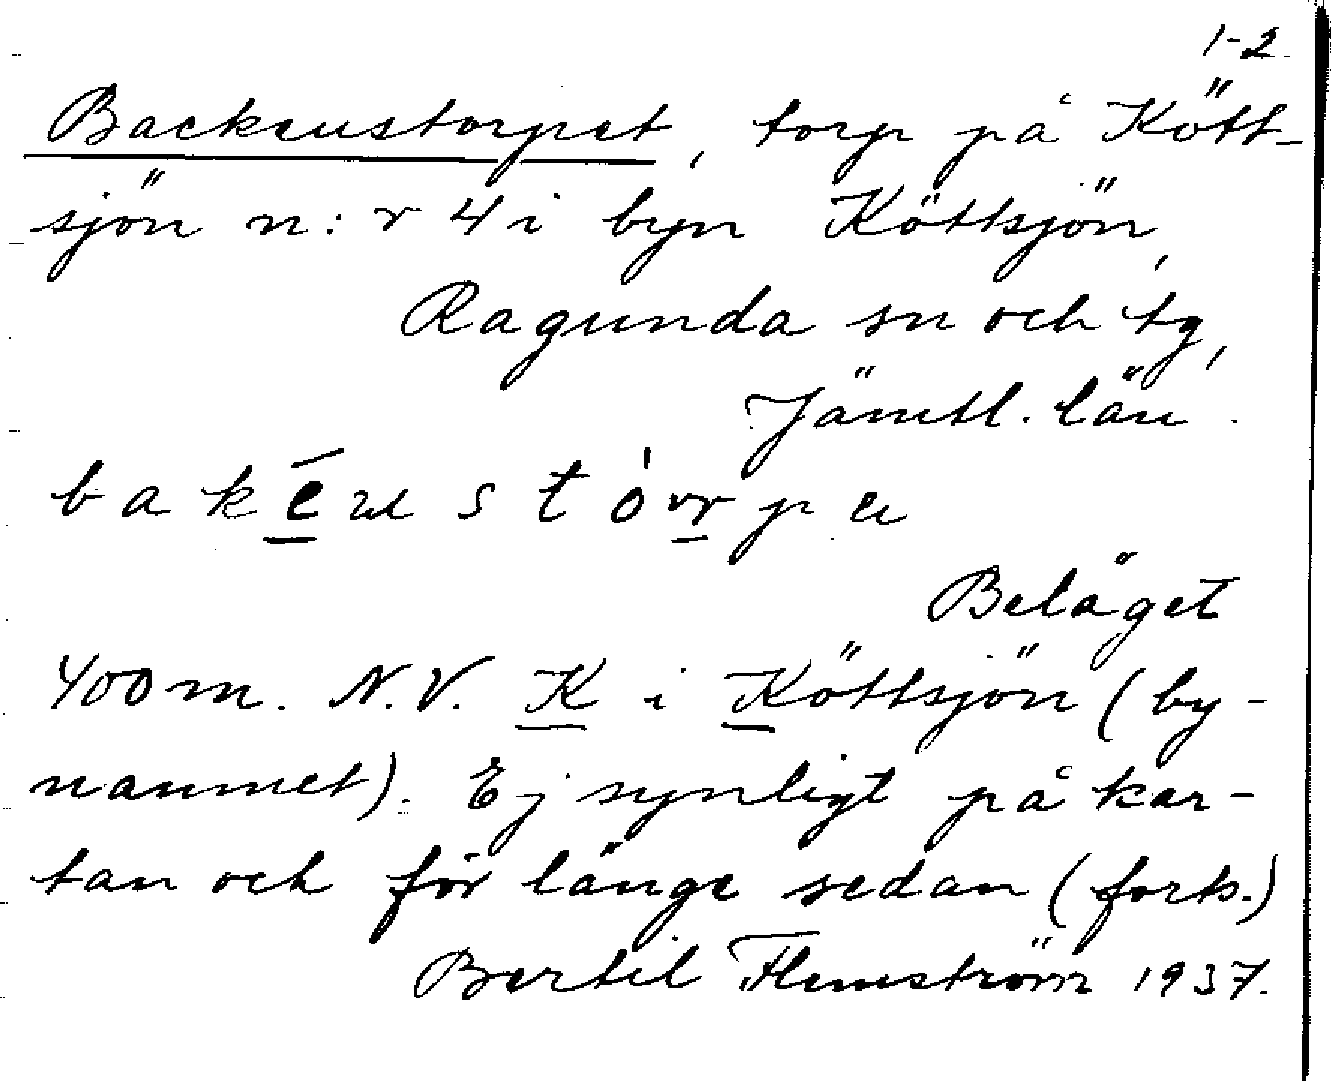 1-2.
Backenstorpet, torp på Kött-
sjön n:r 4 i byn Köttsjön,
Ragunda sn och tg,
Jämtl. län.
Beläget
400 m. N.V. K i Köttsjön (by-
namnet). Ej synligt på kar-
tan och för länge sedan (forts.)
Bertil Flemström 1937.